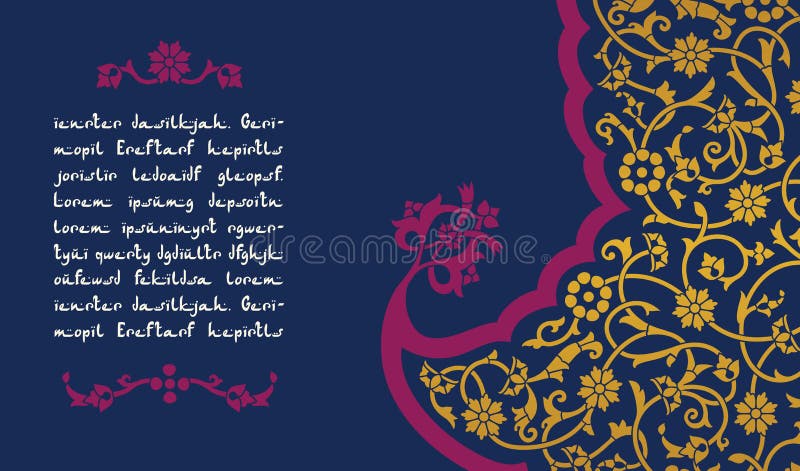 ïenrter dasilkjah. Geri-
mopil Ereftarf hepirtls
jorislir ledoaidf gleopsf.
Lorem ipsumg depsoitn
lorem ipsuninyrt rgwer-
tyüi qwerty dgdiultr dfghjk
oüfewsd fekildsa lorem
ïenrter dasilkjah. Geri-
mopil Ereftarf hepirtls
dreamstime